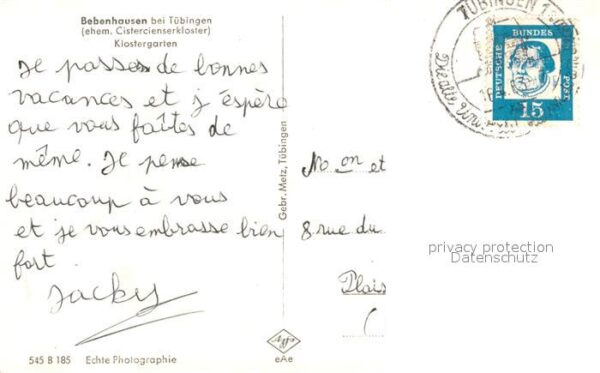 Bebenhausen bei Tübingen
(ehem. Cistercienserkloster)
Klostergarten
Je passe de bonnes
vacances et j'éspère
que vous faîtes de
même. Je pense
beaucoup à vous
et je vous embrasse bien
fort.
Jacky
545 B 185 Echte Photographie
Gebr. Metz, Tübingen
eAe
TÜBINGEN 1
Die alte
DEUTSCHE BUNDES POST
15
et
8 rue du
Plais
(
privacy protection
Datenschutz